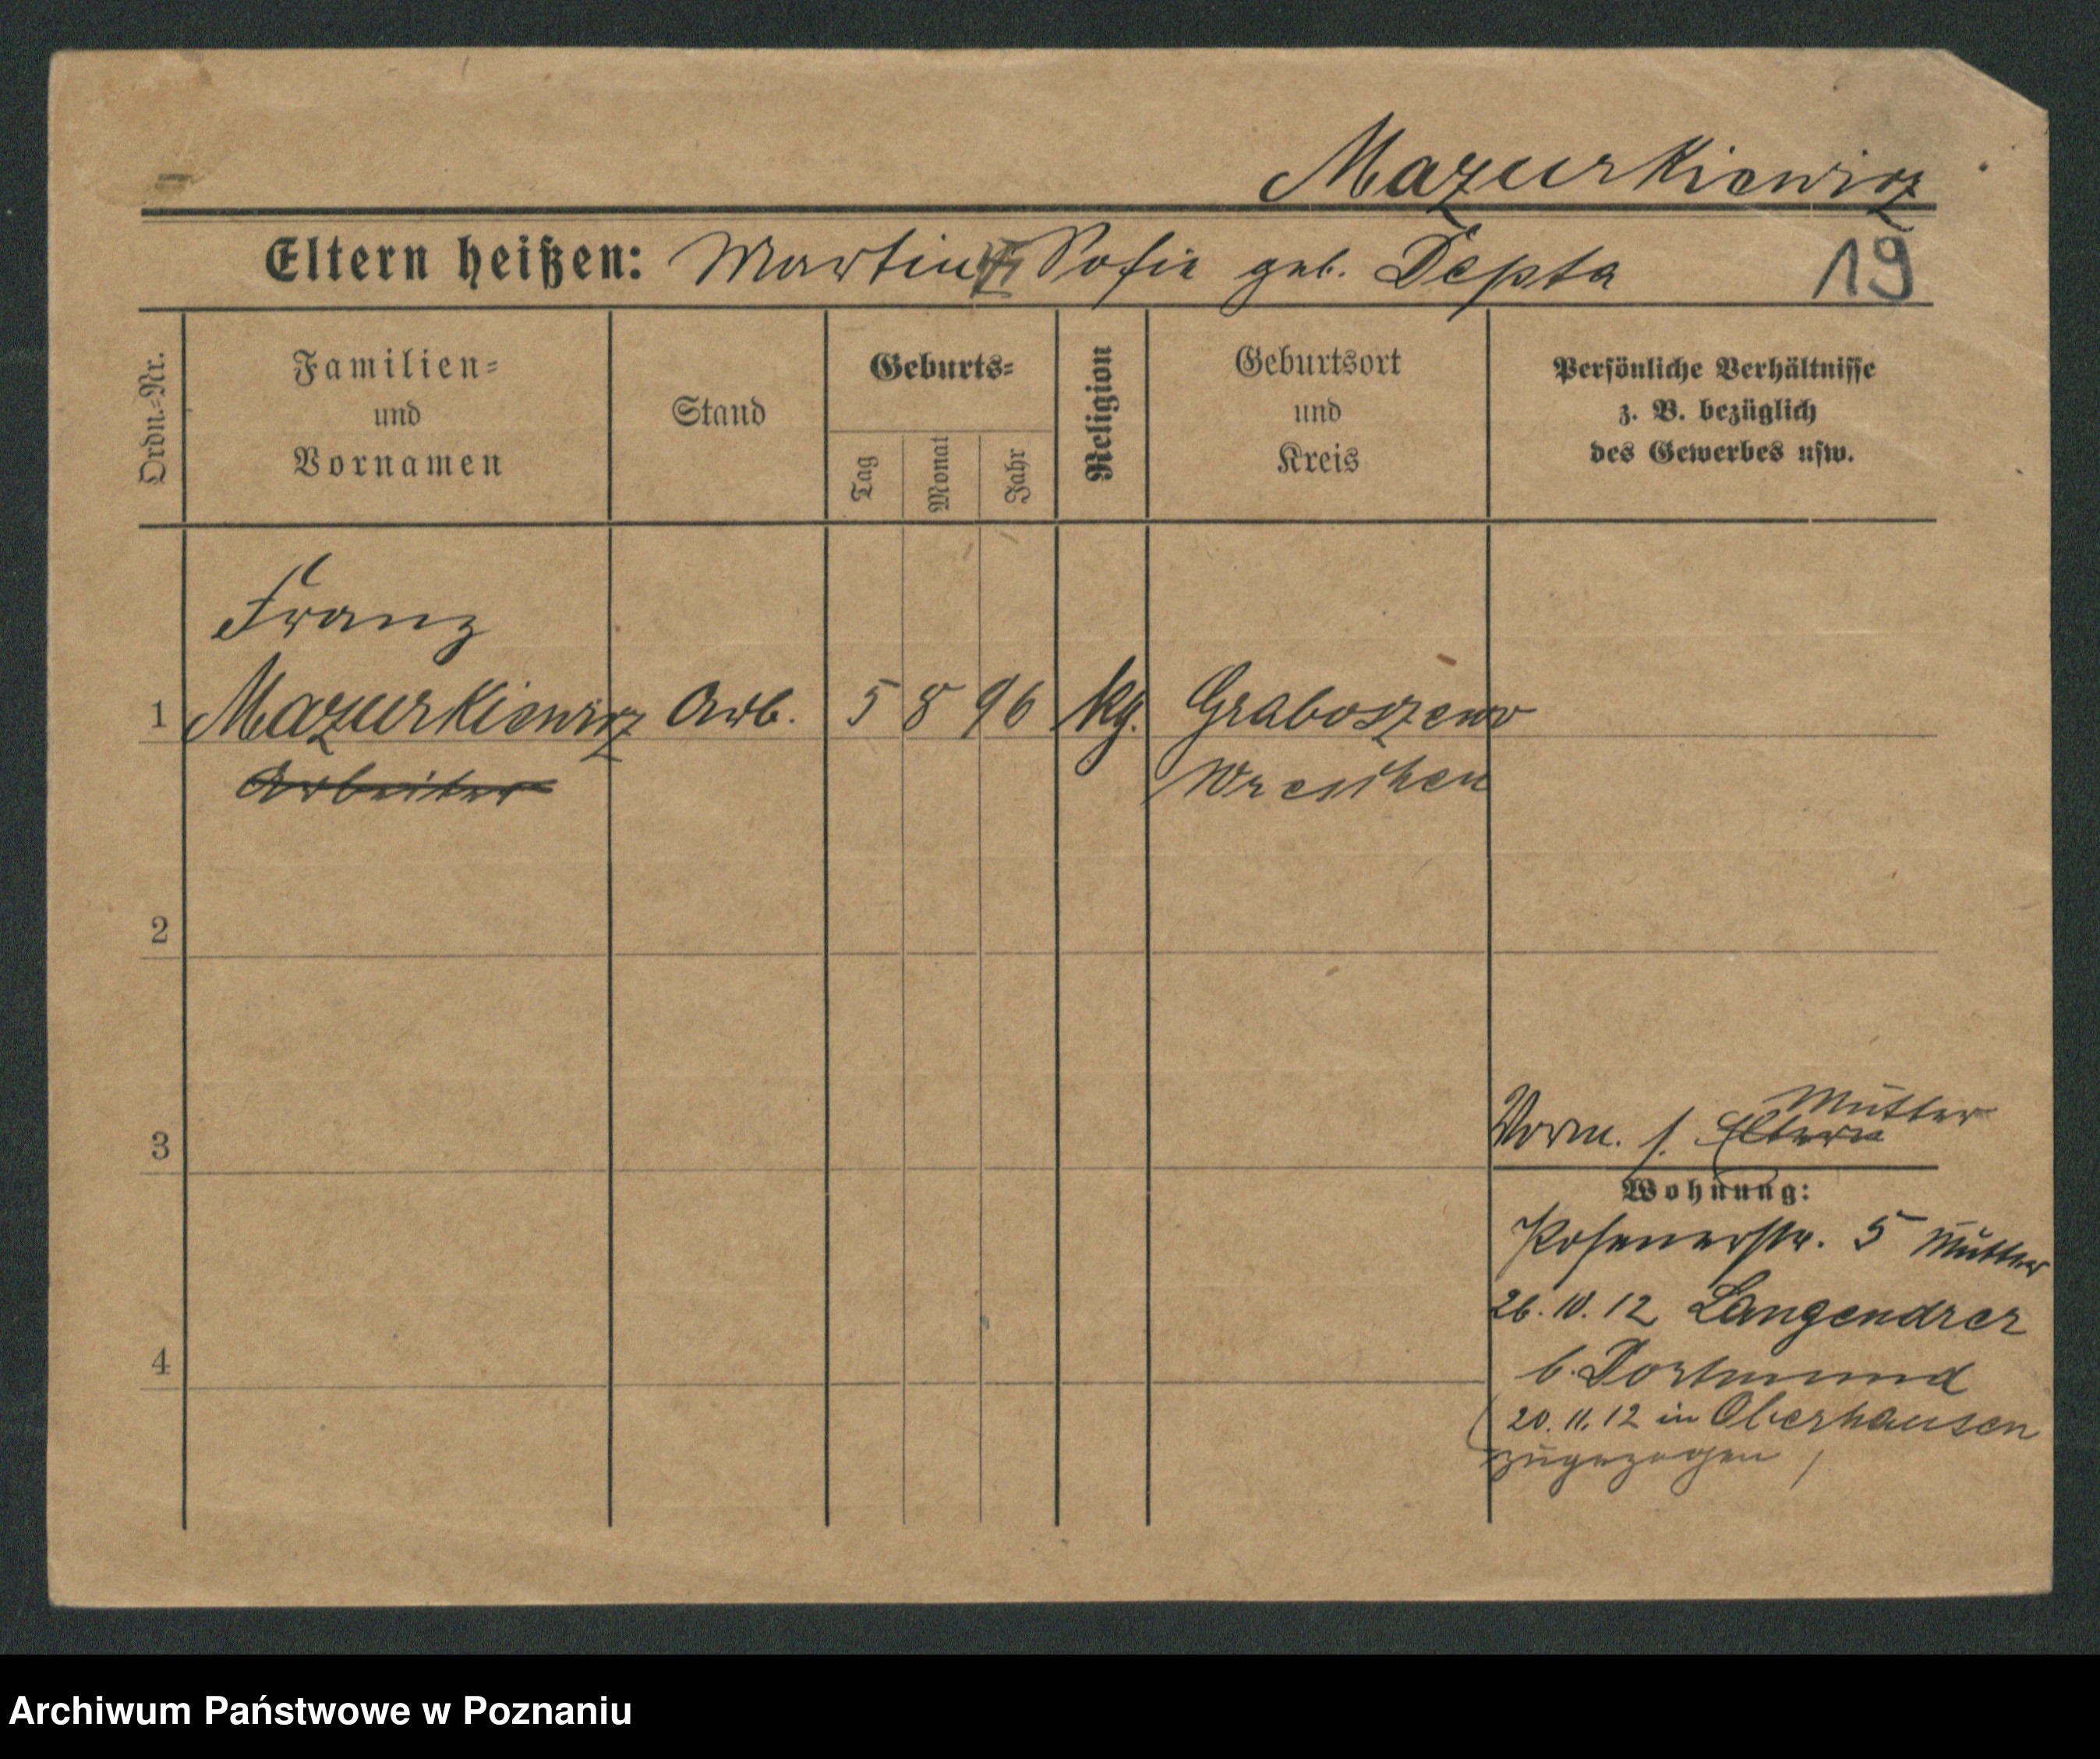 Mazurkiewicz
Eltern heißen: Martin Sofie geb. Depta 19
Ordn.-Nr.
Familien-
und
Vornamen
Stand
Geburts-
Tag
Monat
Jahr
Religion
Geburtsort
und
Kreis
Persönliche Verhältnisse
z. B. bezüglich
des Gewerbes usw.
Franz
1 Mazurkiewicz Arb. 5 8 96 kg. Graboszewo
Arbeiter Wreschen
2
3
Mutter
Vorm. s. Eltern
Wohnung:
Posenerstr. 5 Mutter
26. 10. 12 Langendreer
4
b. Dortmund
(20. 11. 12 in Oberhausen
zugezogen)
Archiwum Państwowe w Poznaniu